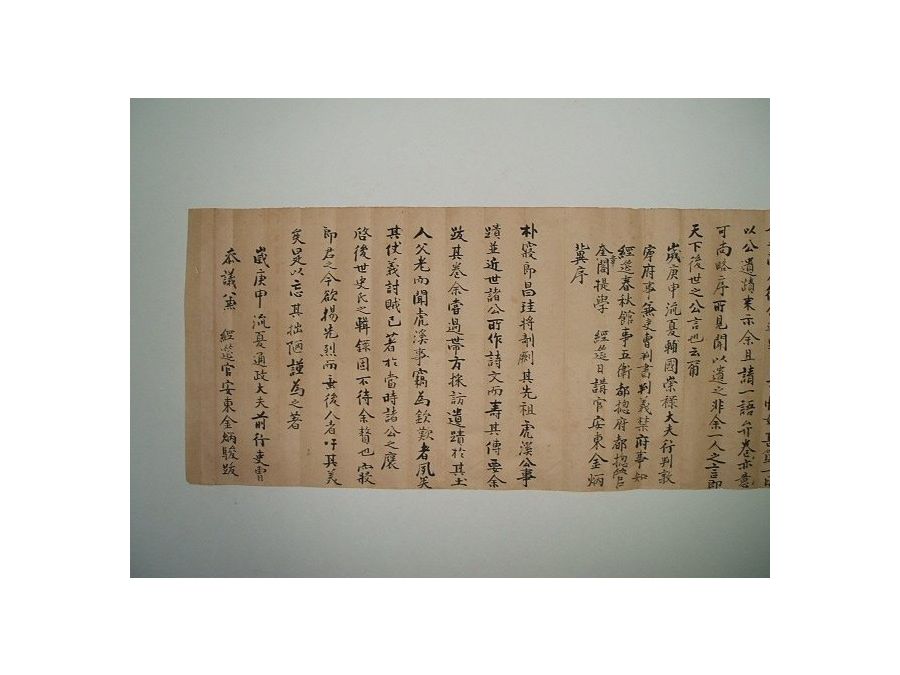 以公遺蹟來示余且請一語弁卷亦意
可尙略序所見聞以遺之非余一人之言即
天下後世之公言也云爾
歲庚申流夏輔國崇祿大夫行判敦
寧府事兼吏曹判書判義禁府事知
經筵春秋館事五衛都摠府都摠管
奎章閣提學 經筵日講官安東金炳
冀序
朴寢郎昌珪將剞劂其先祖虎溪公事
蹟並近世諸公所作詩文而壽其傳要余
跋其卷余嘗過帶方採訪遺蹟於其土
人父老而聞虎溪事竊爲欽歎者夙矣
其仗義討賊已著於當時諸公之褒
啓後世史氏之輯錄固不待余贅也寢
郎君之今欲揚先烈而垂後人者吁其義
矣是以忘其拙陋謹爲之著
歲庚申流夏通政大夫前行吏曹
叅議兼 經筵官安東金炳駿跋